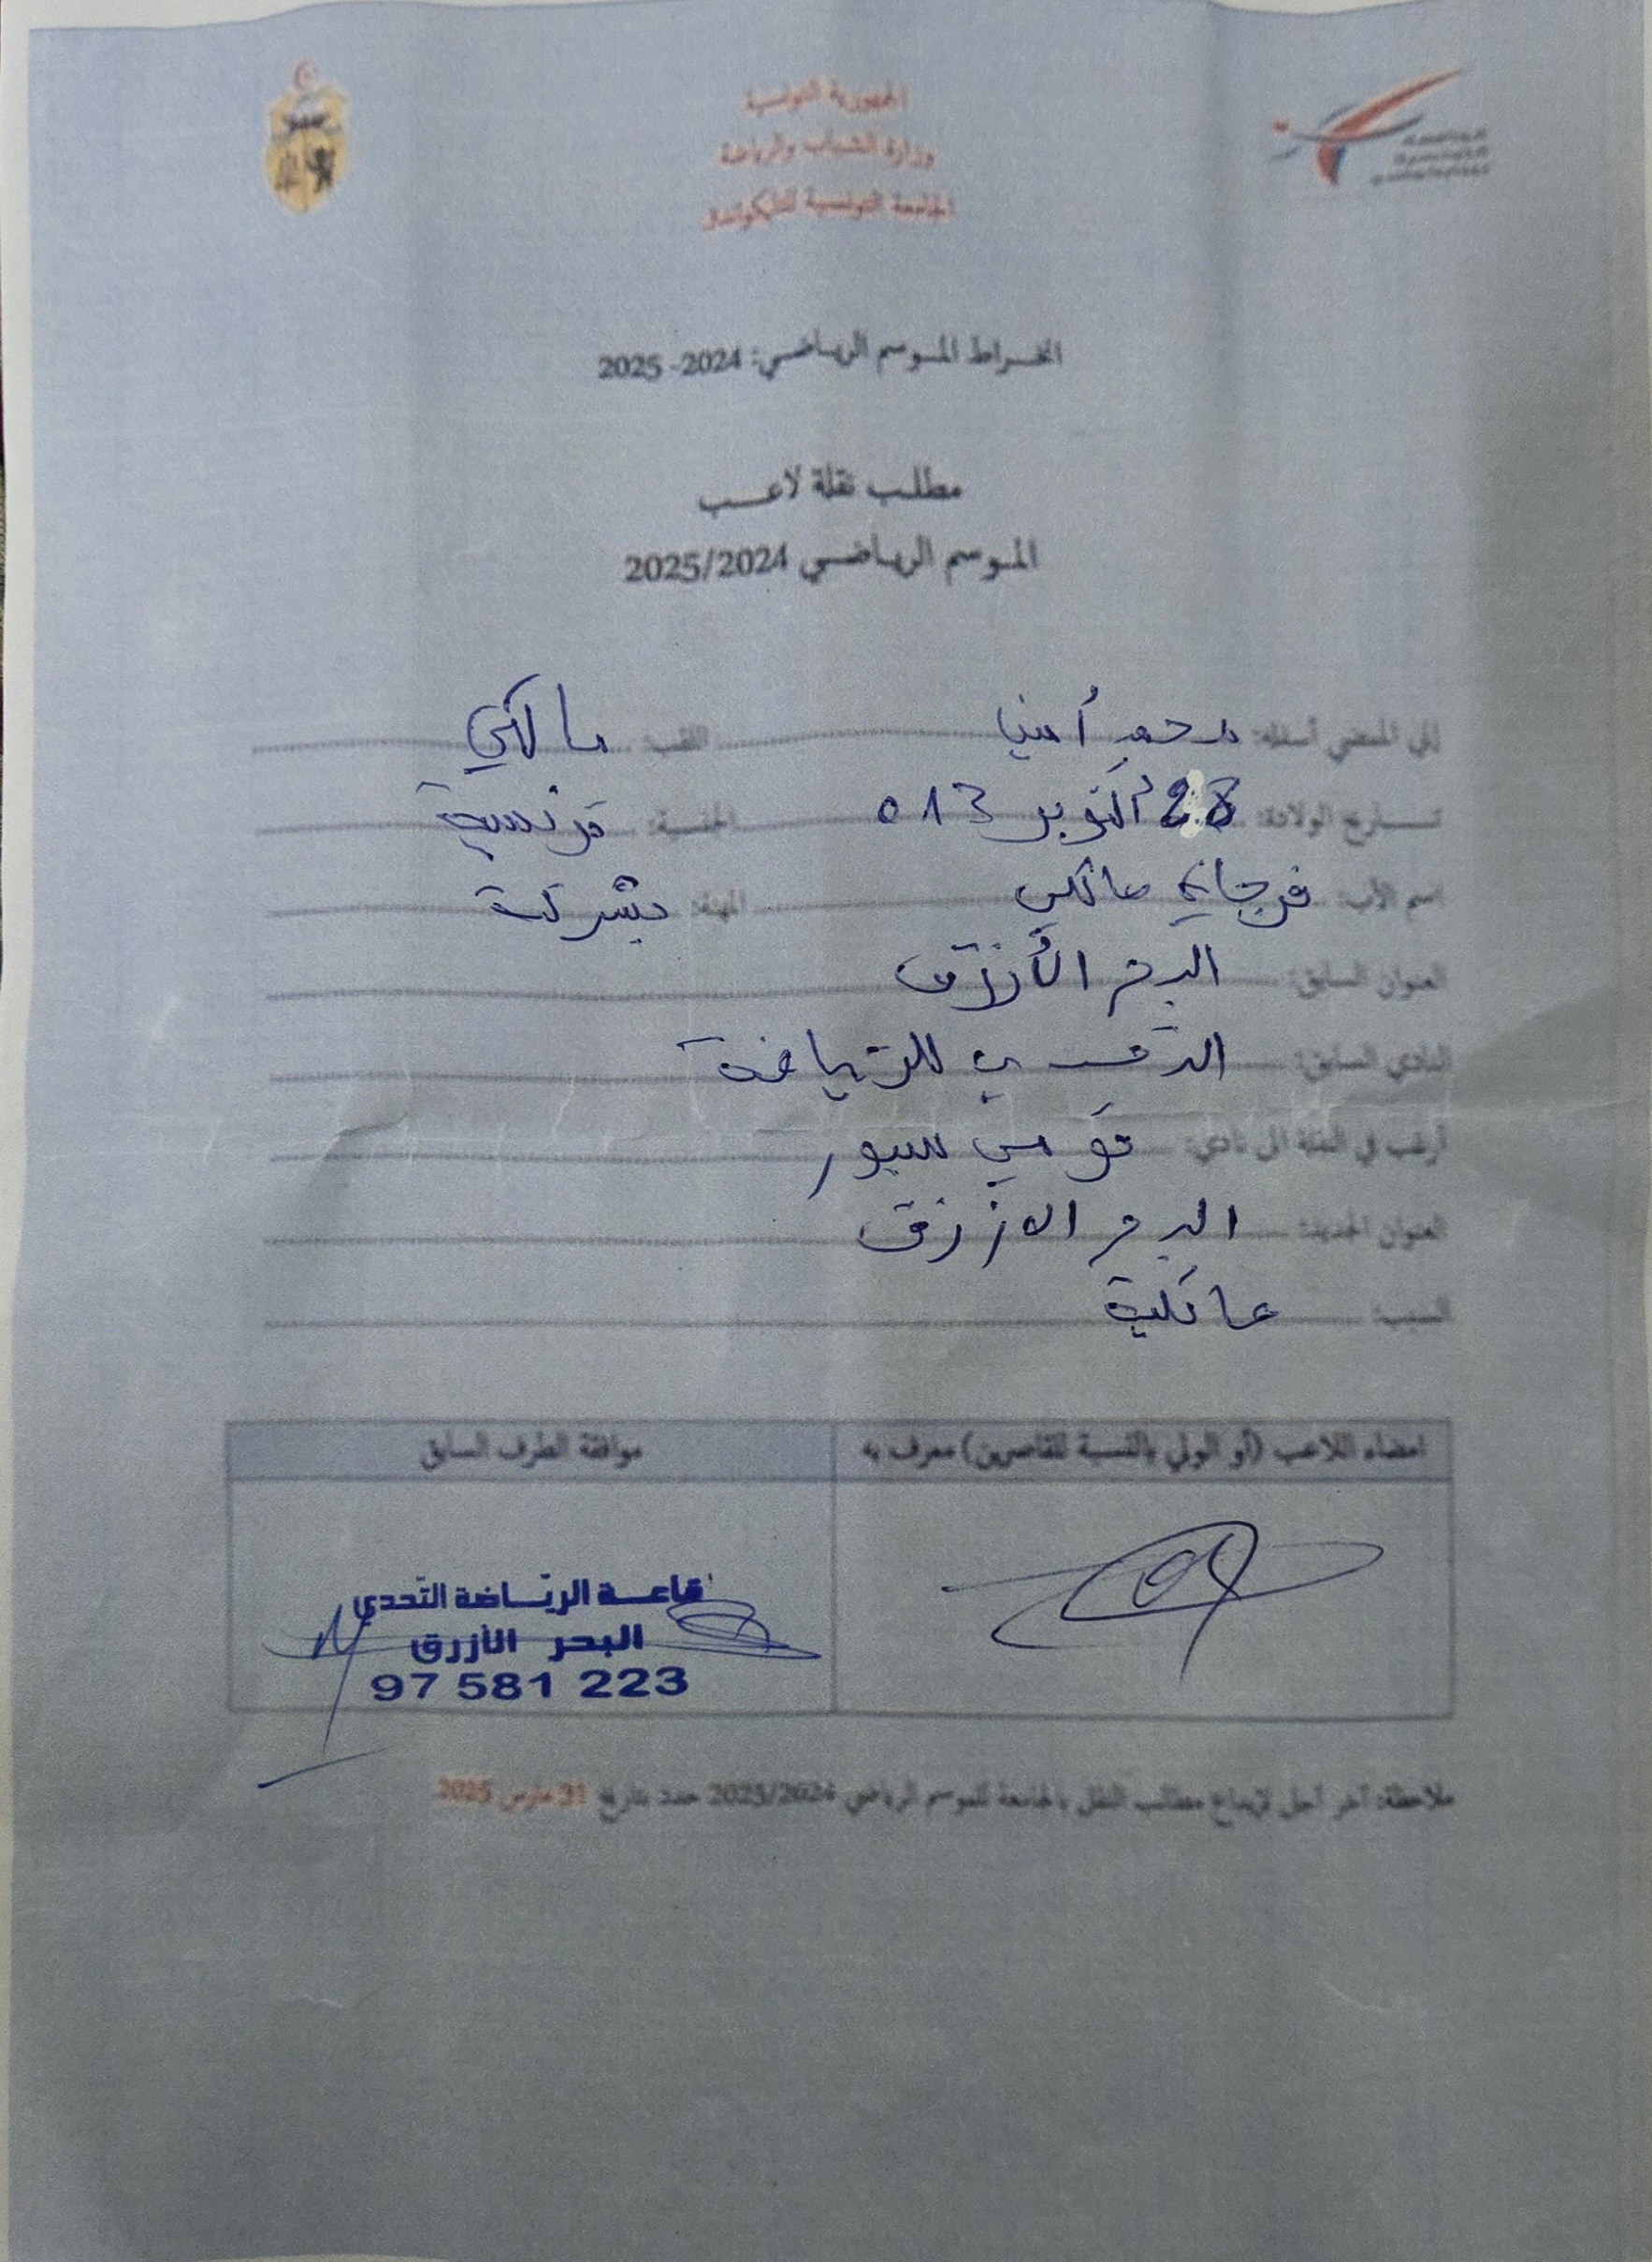 الجمهورية التونسية
وزارة الشباب والرياضة
الجامعة التونسية للتايكواندو
انخراط الموسم الرياضي: 2024- 2025
مطلب نقلة لاعب
الموسم الرياضي 2025/2024
إني الممضي أسفله: محمد أمين اللقب: مالكي
تاريخ الولادة: 28 أكتوبر 013 الجنسية: تونسية
اسم الأب: فرجاني مالكي المهنة: بشركة
العنوان السابق: البحر الأزرق
النادي السابق: للرياضة
أرغب في النقلة الى نادي: سبور
العنوان الجديد: البحر الازرق
السبب: عائلية
امضاء اللاعب (أو الولي بالنسبة للقاصرين) معرف به موافقة الطرف السابق
قاعة الرياضة التحدي
البحر الأزرق
97 581 223
ملاحظة: آخر أجل لإيداع مطالب النقل بالجامعة للموسم الرياضي 2025/2024 حدد بتاريخ 31 مارس 2025